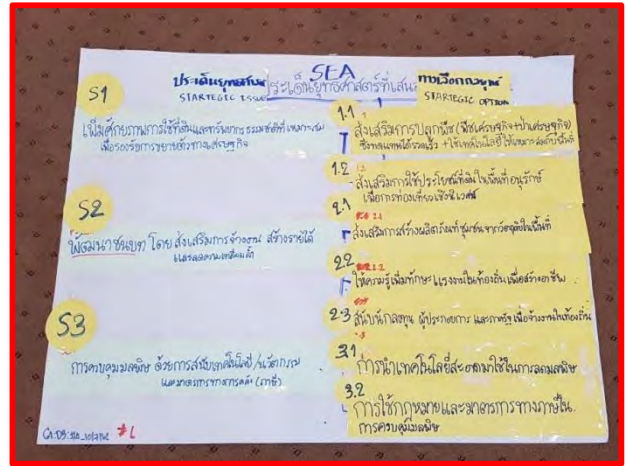 SEA
ประเด็นยุทธศาสตร์ที่เสน
STARTEGIC ISSUE
ทางเลือกกลยุทธ์
STARTEGIC OPTION
S1
เพิ่มศักยภาพการใช้ที่ดินและทรัพยากรธรรมชาติที่เหมาะสม
เพื่อรองรับการขยายตัวทางเศรษฐกิจ
1.1
ส่งเสริมการปลูกพืช (พืชเศรษฐกิจ+ป่าเศรษฐกิจ)
+ใช้เทคโนโลยีให้เหมาะสมกับพื้นที่
1.2
ส่งเสริมการใช้ประโยชน์ที่ดินในพื้นที่อนุรักษ์
เพื่อการท่องเที่ยวเชิงนิเวศน์
S2
พัฒนาชนบท โดยส่งเสริมการจ้างงาน สร้างรายได้
และลดความเหลื่อมล้ำ
2.1
ส่งเสริมการสร้างผลิตภัณฑ์ชุมชนจากวัตถุดิบในพื้นที่
2.2
ให้ความรู้เพิ่มทักษะแรงงานในท้องถิ่นเพื่อสร้างอาชีพ
2.3
ผู้ประกอบการ และภาครัฐ เพื่อจ้างงานในท้องถิ่น
S3
การควบคุมมลพิษ ด้วยการสนับสนุนเทคโนโลยี/นวัตกรรม
และมาตรการทางการคลัง (ภาษี)
3.1
การนำเทคโนโลยีสะอาดมาใช้ในการลดมลพิษ
3.2
การใช้กฎหมายและมาตรการทางภาษีใน
การควบคุมมลพิษ